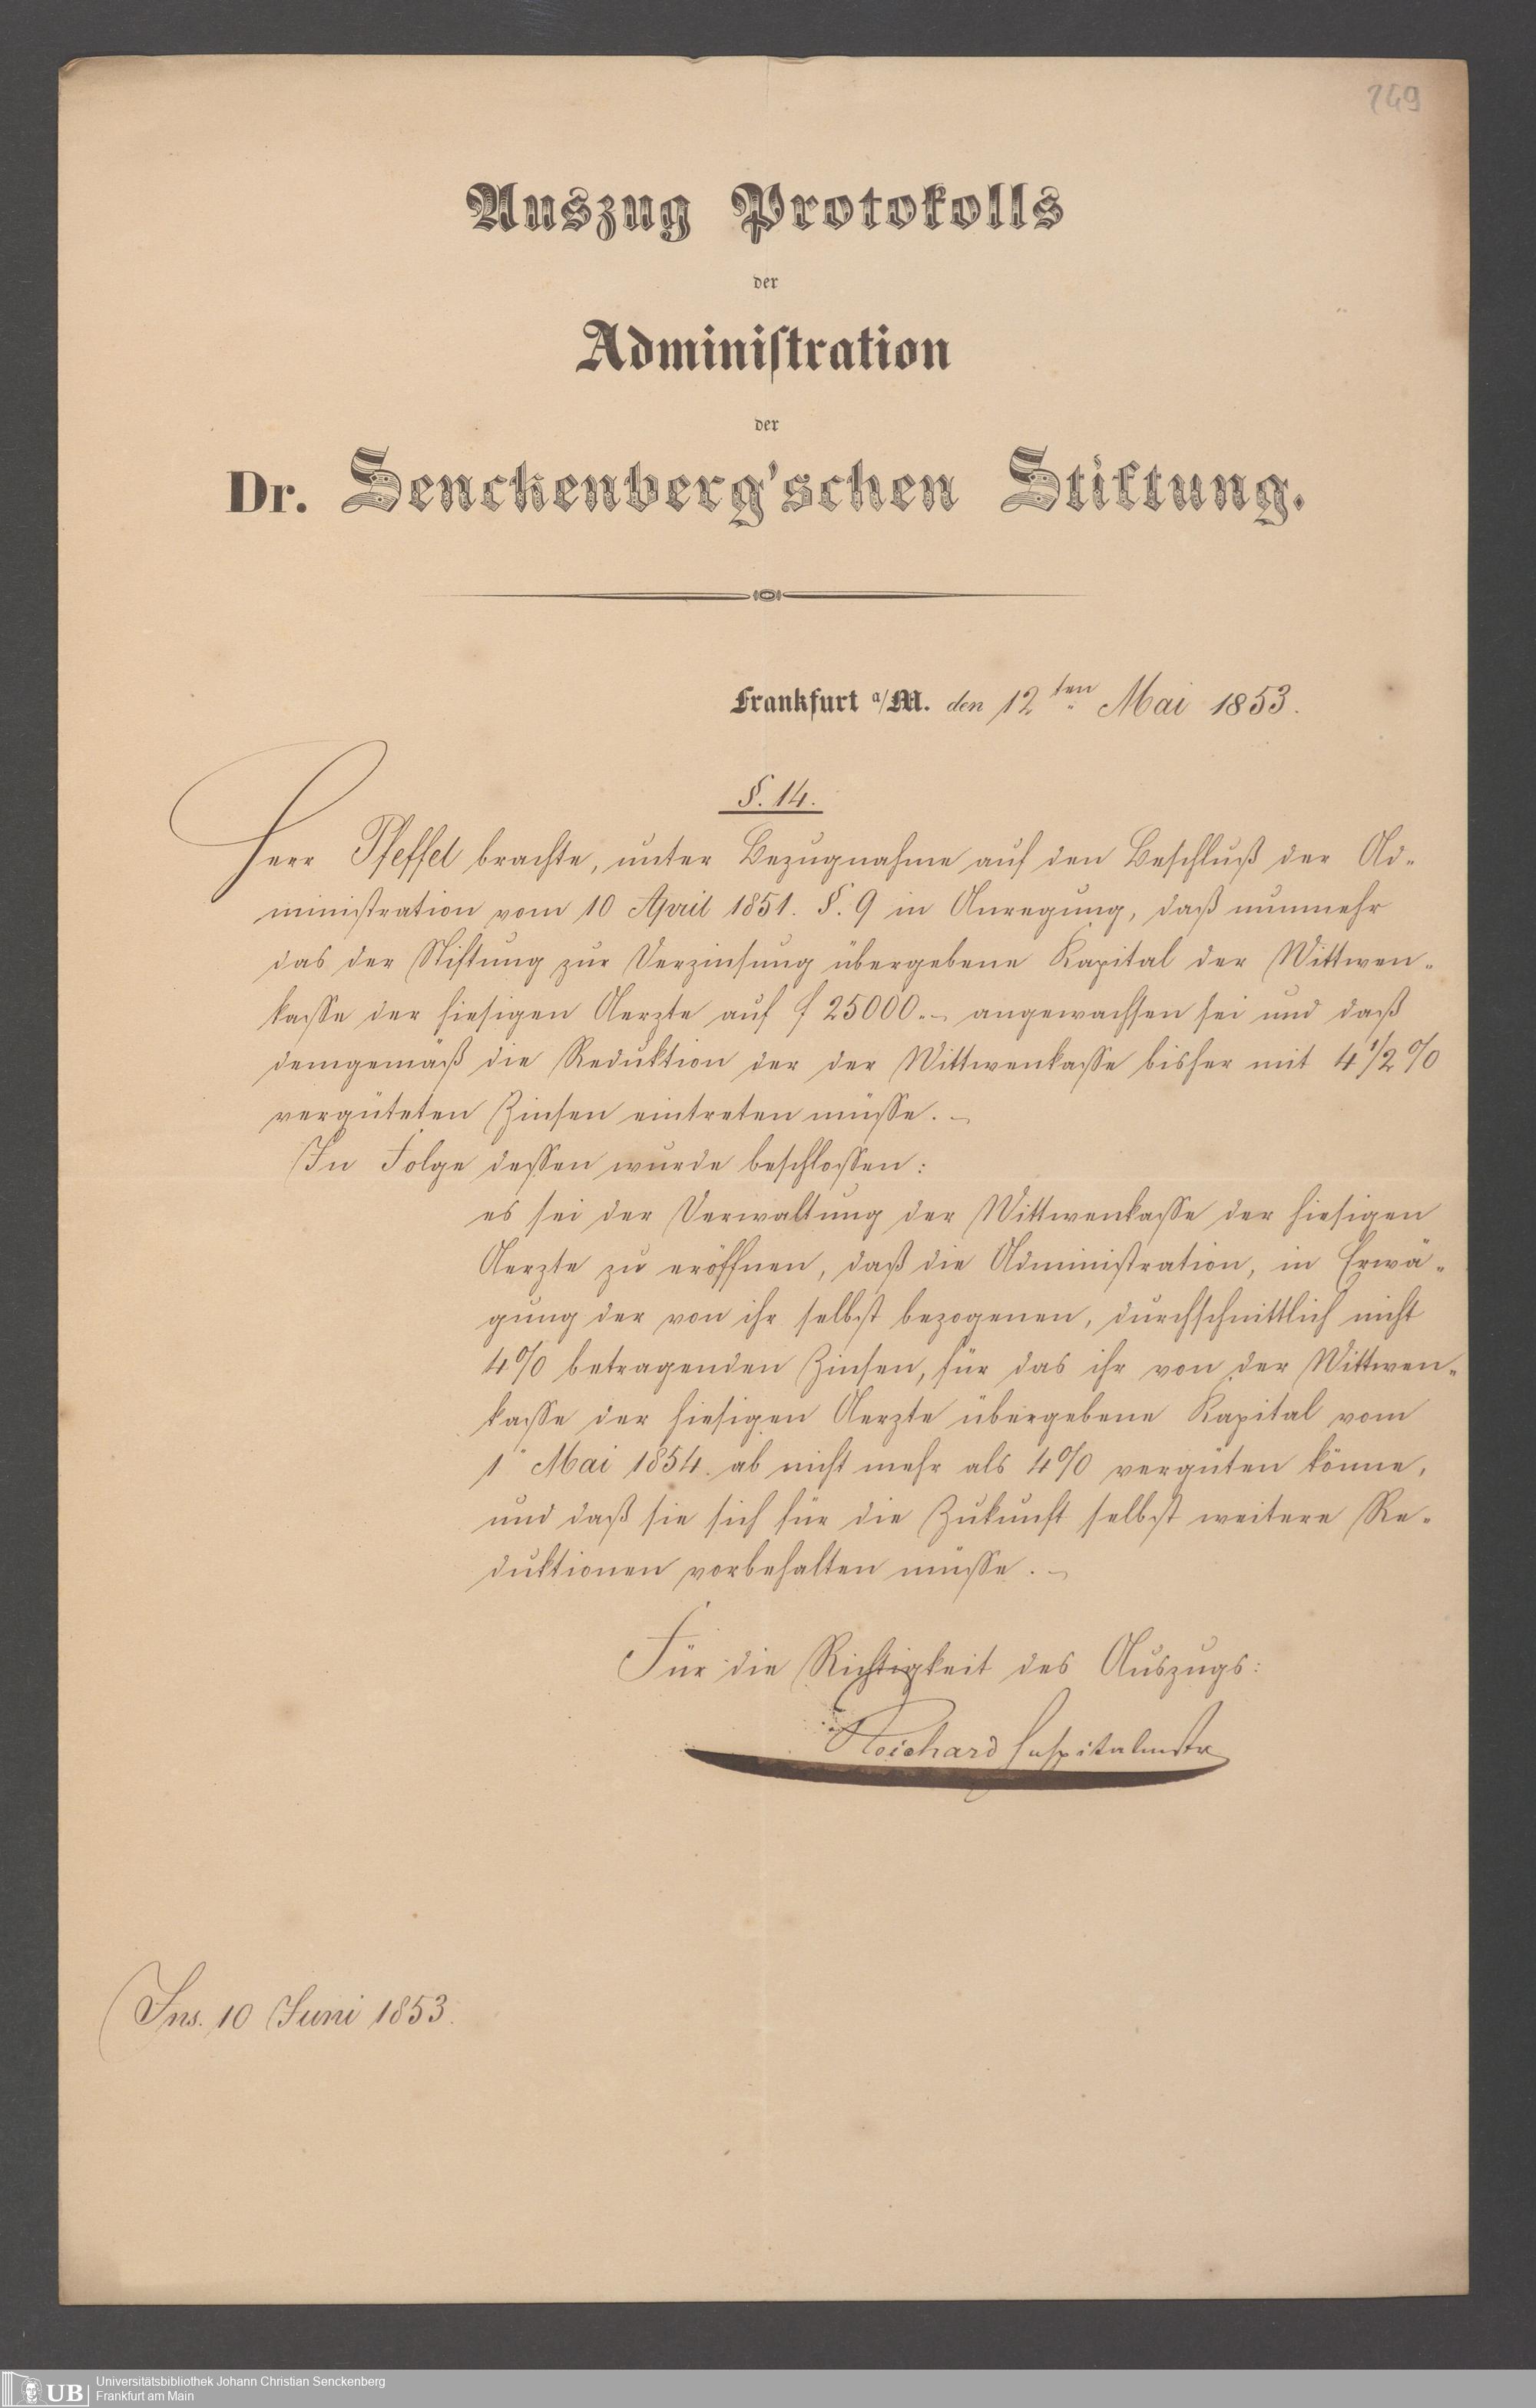 249
Auszug Protokolls
der
Administration
der
Dr. Senckenberg'schen Stiftung.
Frankfurt a/M. den 12ten Mai 1853.
§. 14.
Herr Pfeffel brachte, unter Bezugnahme auf den Beschluß der Ad-
ministration vom 10 April 1851. §. 9 in Anregung, daß nunmehr
das der Stiftung zur Verzinsung übergebene Kapital der Wittwen-
kasse der hiesigen Aerzte auf f 25000.- angewachsen sei und daß
demgemäß die Reduktion der der Wittwenkasse bisher mit 4 1/2 %
vergüteten Zinsen eintreten müsse. -
In Folge dessen wurde beschlossen:
es sei der Verwaltung der Wittwenkasse der hiesigen
Aerzte zu eröffnen, daß die Administration, in Erwä-
gung der von ihr selbst bezogenen, durchschnittlich nicht
4% betragenden Zinsen, für das ihr von der Wittwen-
kasse der hiesigen Aerzte übergebene Kapital vom
1 Mai 1854. ab nicht mehr als 4% vergüten könne,
und daß sie sich für die Zukunft selbst weitere Re-
duktionen vorbehalten müsse. -
Für die Richtigkeit des Auszugs:
Reichard Hospitalmstr
Ins. 10 Juni 1853.
UB Universitätsbibliothek Johann Christian Senckenberg
Frankfurt am Main